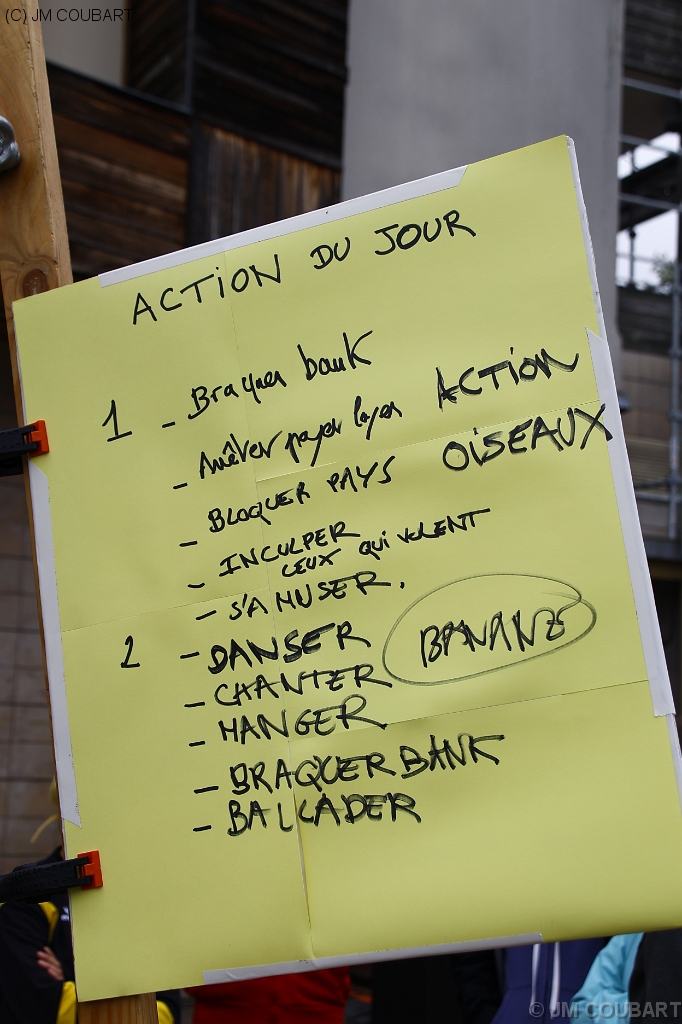 (C) JM COUBART
ACTION DU JOUR
1 - Braquer bank
- Arrêter payer loyer ACTION
- BLOQUER PAYS OISEAUX
- INCULPER
CEUX QUI VOLENT
- S'AMUSER.
2 - DANSER BANANE
- CHANTER
- MANGER
- BRAQUER BANK
- BALLADER
© JM COUBART